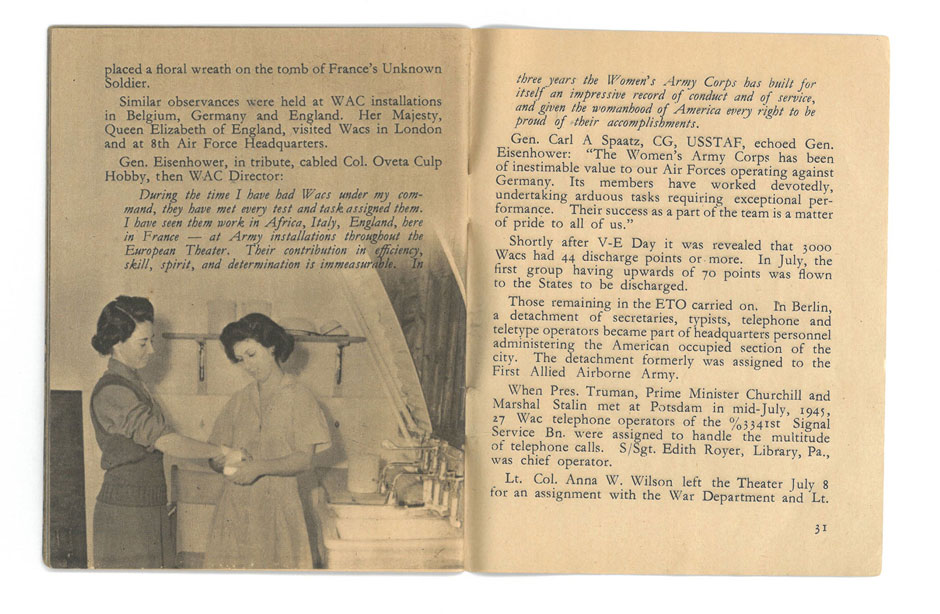 placed a floral wreath on the tomb of France's Unknown
Soldier.
Similar observances were held at WAC installations
in Belgium, Germany and England. Her Majesty,
Queen Elizabeth of England, visited Wacs in London
and at 8th Air Force Headquarters.
Gen. Eisenhower, in tribute, cabled Col. Oveta Culp
Hobby, then WAC Director:
During the time I have had Wacs under my com-
mand, they have met every test and task assigned them.
I have seen them work in Africa, Italy, England, here
in France — at Army installations throughout the
European Theater. Their contribution in efficiency,
skill, spirit, and determination is immeasurable. In
three years the Women's Army Corps has built for
itself an impressive record of conduct and of service,
and given the womanhood of America every right to be
proud of their accomplishments.
Gen. Carl A Spaatz, CG, USSTAF, echoed Gen.
Eisenhower: "The Women's Army Corps has been
of inestimable value to our Air Forces operating against
Germany. Its members have worked devotedly,
undertaking arduous tasks requiring exceptional per-
formance. Their success as a part of the team is a matter
of pride to all of us."
Shortly after V-E Day it was revealed that 3000
Wacs had 44 discharge points or more. In July, the
first group having upwards of 70 points was flown
to the States to be discharged.
Those remaining in the ETO carried on. In Berlin,
a detachment of secretaries, typists, telephone and
teletype operators became part of headquarters personnel
administering the American occupied section of the
city. The detachment formerly was assigned to the
First Allied Airborne Army.
When Pres. Truman, Prime Minister Churchill and
Marshal Stalin met at Potsdam in mid-July, 1945,
27 Wac telephone operators of the %3341st Signal
Service Bn. were assigned to handle the multitude
of telephone calls. S/Sgt. Edith Royer, Library, Pa.,
was chief operator.
Lt. Col. Anna W. Wilson left the Theater July 8
for an assignment with the War Department and Lt.
31